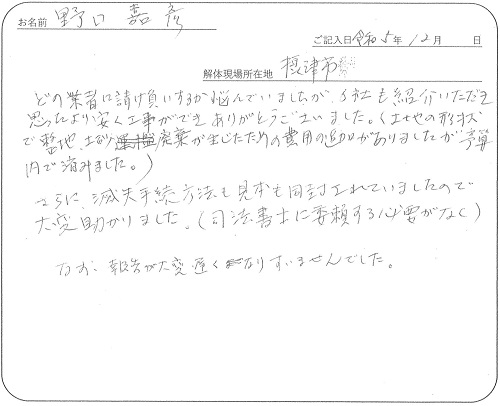 お名前 野口 嘉彦
ご記入日 令和5年12月 日
解体現場所在地 摂津市
どの業者に請け負いするか悩んでいましたが、3社も紹介いただき
思ったより安く工事ができ ありがとうございました。(土地の形状
で整地、土砂廃棄が生じたための費用の追加がありましたが予算
内で済みました。)
さらに、滅失手続方法も見本も同封されていましたので
大変助かりました。(司法書士に委頼する必要がなく)
なお、報告が大変遅くなりすいませんでした。